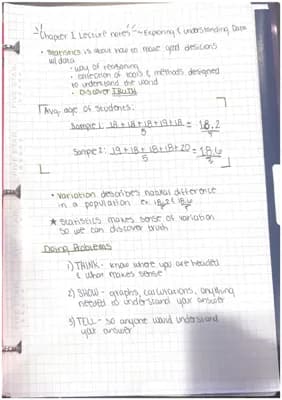 Chapter 1 Lecture notes ~ Exploring & Understanding Data
• Statistics is about how to make good desicions
w/ data
• way of reasoning
• collection of tools & methods designed
to understand the world
• Discover TRUTH
Avg. age of students:
Sample 1: 18 + 18 + 18 + 19 + 18 = 18.2
5
Sample 2: 19 + 18 + 18 + 18 + 20 = 18.6
5
• Variation describes natural difference
in a population ex. 18.2 & 18.6
★ Statistics makes sense of variation
so we can discover truth
Doing Problems
1) THINK - know where you are headed
& what makes sense
2) SHOW - graphs, calculations, anything
needed to understand your answer
3) TELL - so anyone would understand
your answer